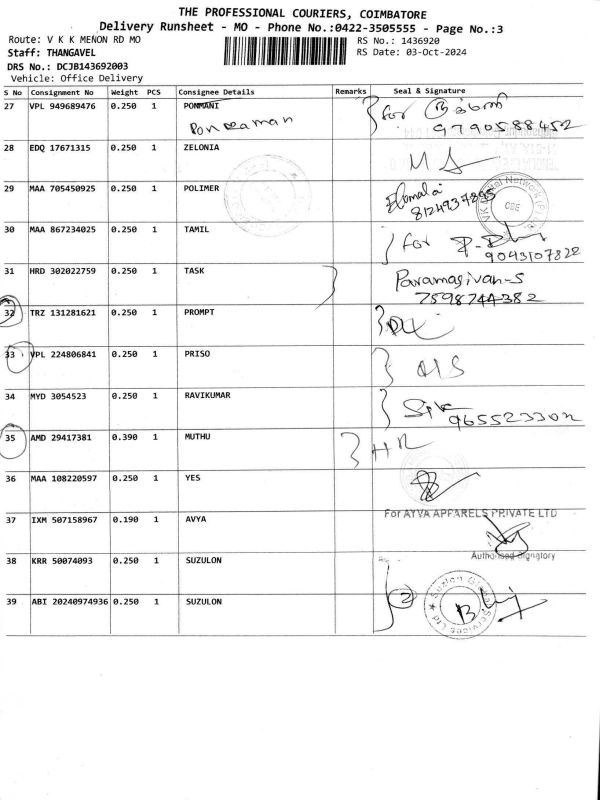 THE PROFESSIONAL COURIERS, COIMBATORE
Delivery Runsheet - MO - Phone No.:0422-3505555 - Page No.:3
Route: V K K MENON RD MO
RS No.: 1436920
Staff: THANGAVEL
RS Date: 03-Oct-2024
DRS No.: DCJB143692003
Vehicle: Office Delivery
S No Consignment No Weight PCS Consignee Details Remarks Seal & Signature
27 VPL 949689476 0.250 1 PONMANI for
9790588452
28 EDQ 17671315 0.250 1 ZELONIA
29 MAA 705450925 0.250 1 POLIMER
8124937895
CBE
30 MAA 867234025 0.250 1 TAMIL for
9043107822
31 HRD 302022759 0.250 1 TASK Paramasivan-S
7598744382
32 TRZ 131281621 0.250 1 PROMPT
33 VPL 224806841 0.250 1 PRISO
34 MYD 3054523 0.250 1 RAVIKUMAR
35 AMD 29417381 0.390 1 MUTHU
36 MAA 108220597 0.250 1 YES
37 IXM 507158967 0.190 1 AVYA For AYVA APPARELS PRIVATE LTD
Authorised Signatory
38 KRR 50074093 0.250 1 SUZULON
39 ABI 20240974936 0.250 1 SUZULON 2